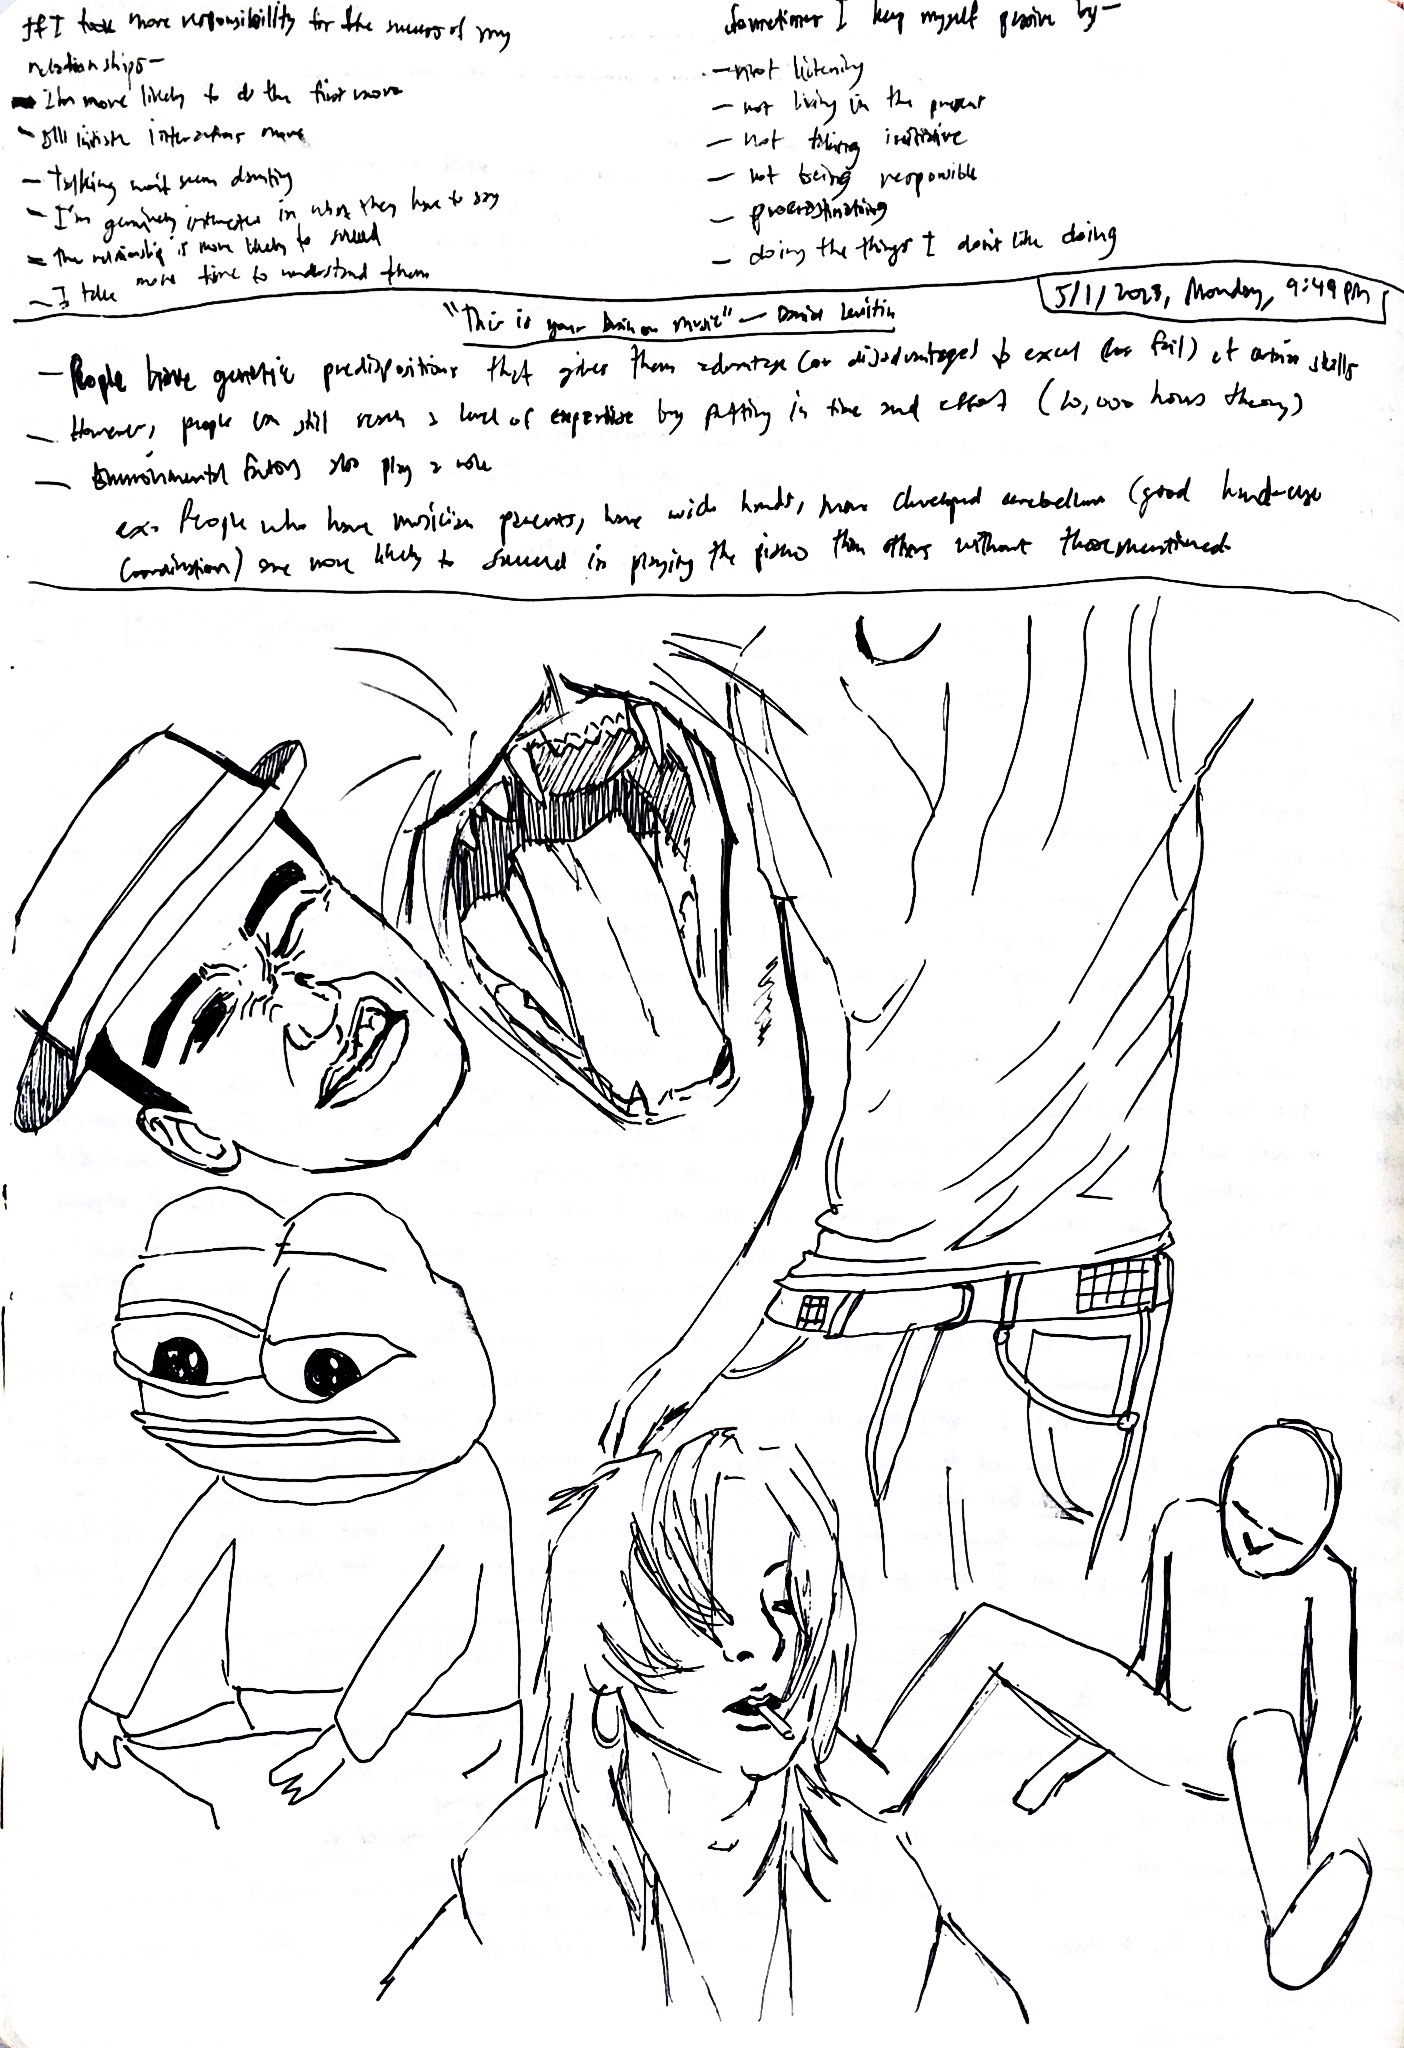 If I took more responsibility for the success of my
relationships-
- I'm more likely to do the first move
- I'll initiate interactions more
- Talking won't seem daunting
- I'm genuinely interested in what they have to say
- The relationship is more likely to succeed
- I take more time to understand them
Sometimes I keep myself passive by-
- not listening
- not living in the present
- not taking initiative
- not being responsible
- procrastinating
- doing the things I don't like doing
5/1/2023, Monday, 9:49 PM
"This is your brain on music" - Daniel Levitin
- People have genetic predispositions that gives them advantage (or disadvantages) to excel (or fail) at certain skills
- However, people can still reach a level of expertise by putting in time and effort (10,000 hours theory)
- Environmental factors also play a role
ex. People who have musician parents, have wide hands, more developed cerebellum (good hand-eye
coordination) are more likely to succeed in playing the piano than others without those mentioned.